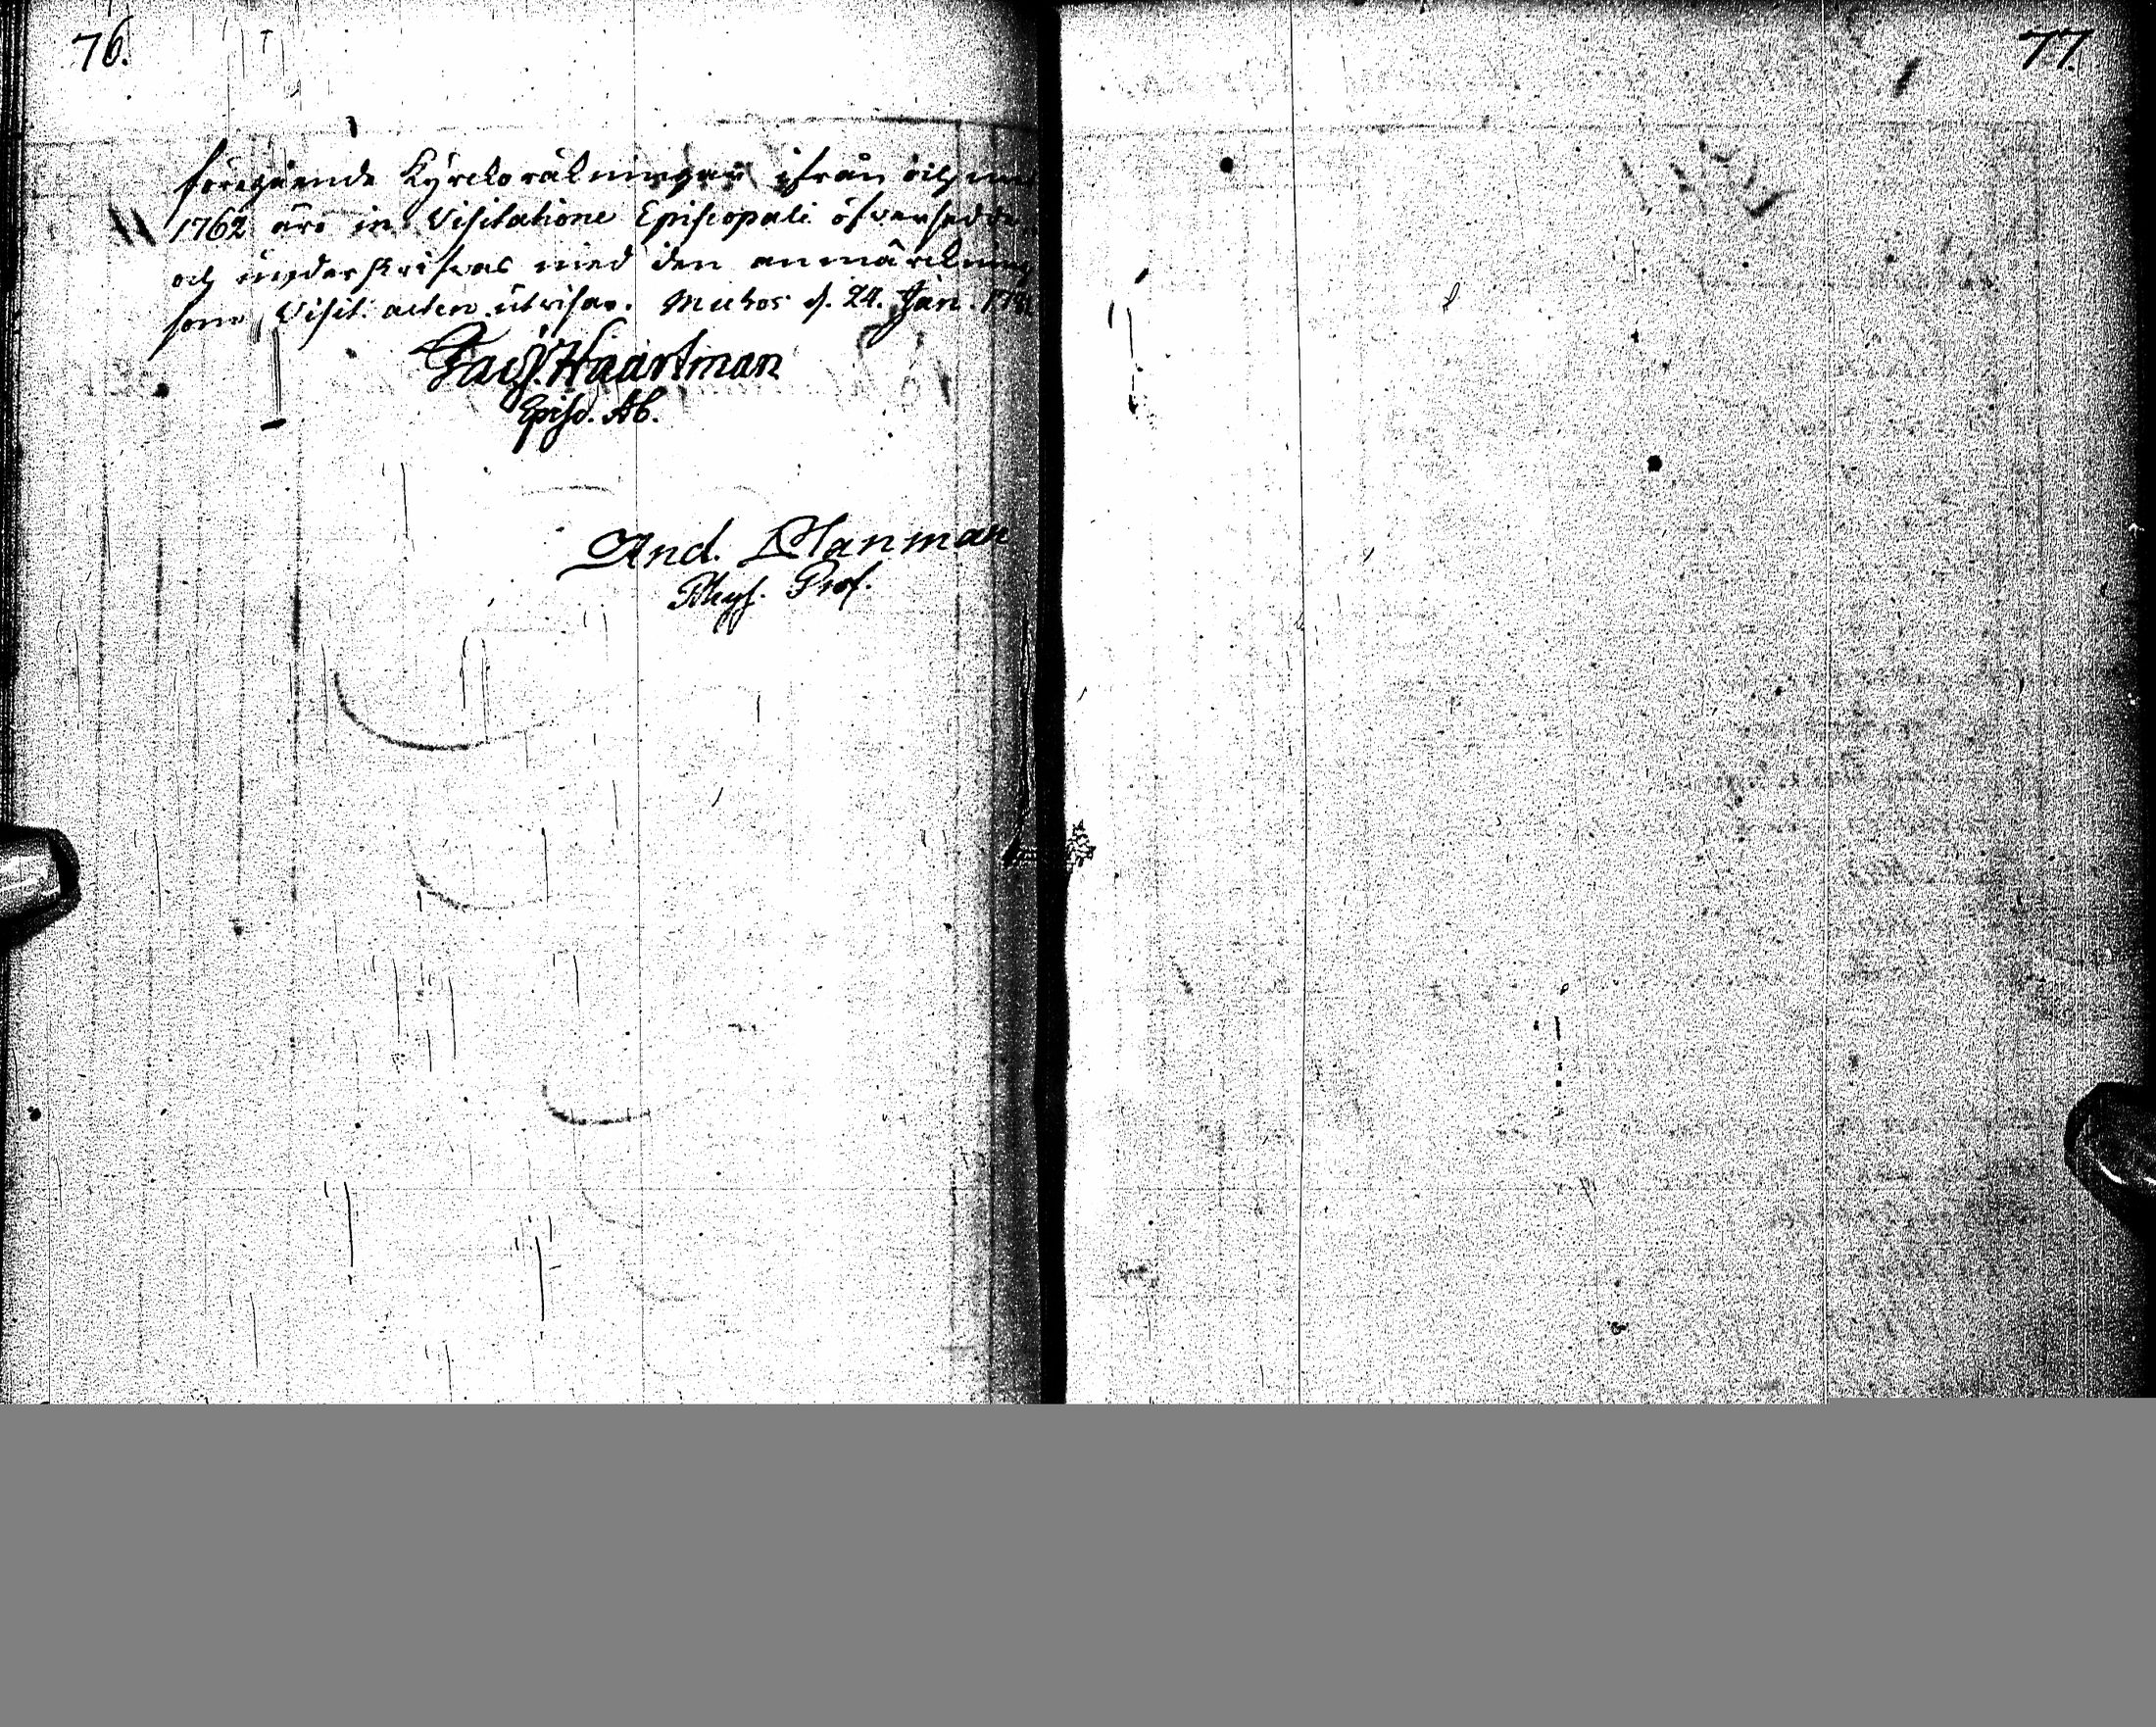 76.
föregående Kyrckoräkningar ifrån och med
1762 äro in Visitatione Episcopali öfversedde
och underskrifvas med den anmärckning
som Visit. acten utvisar. Muhos d. 24. Jan.
Jac. Haartman
Episc. Ab.
And. Planman
Phys. Prof.
77.